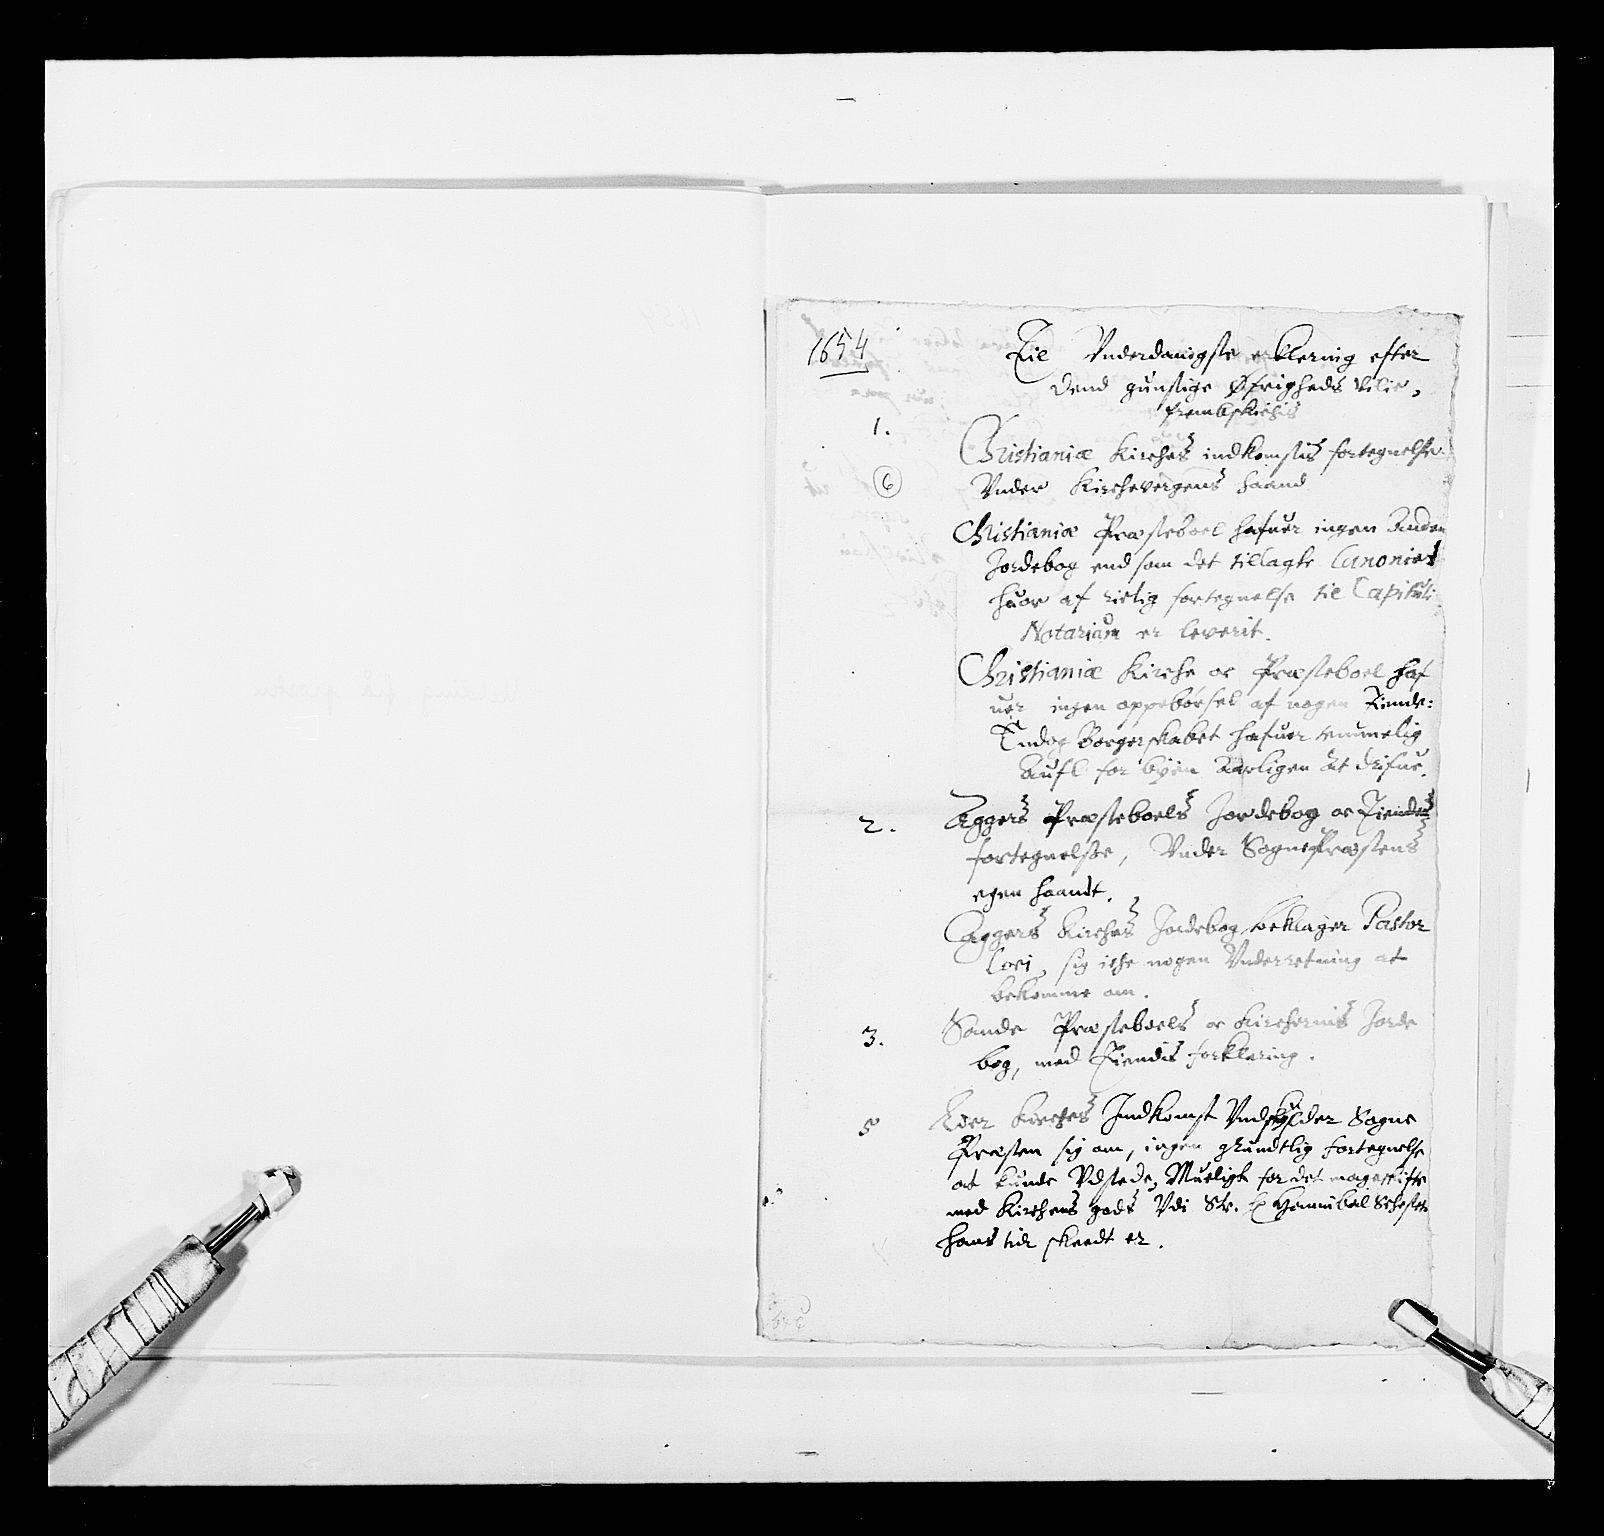 1654
Til Vnderdanigste erklering efter
dend gunstige Øfrigheds Vilie,
frembskickis
1.
Christianiæ Kirches indkomstis fortegnelse
6
Vnder Kircheværgens haand
Christianiæ Præsteboel hafuer ingen Anden
Jordebog end som det tillagte Canonicat
huor af rictig fortegnelse til Capituli
Notarium er leverit.
Christianiæ Kirche oc Præsteboel haf
uer ingen oppebørsel af nogen Tiende:
Endog Borgerskabet hafuer temmelig
Aufl for byen Aarligen at drifue.
2.
Aggers Præsteboels Jordebog oc Tiendes
fortegnelsse, Vnder SognePræstens
egen haandt.
Aggers Kirches Jordebog beklager Pastor
Loci, sig iche nogen Vnderretning at
bekomme om.
3.
Sande Præsteboels oc Kirchernis Jorde
bog, med Tiendis forklaring.
5
Kirches Indkomst Vndskylder Sogne
Præsten sig om, ingen grundtlig fortegnelse
at kunde Vdstede, Mueligt for det mageskifte
med Kirchens gods Vdi Sr. H Hannibal Sehesteds
hans tid skeedt er.